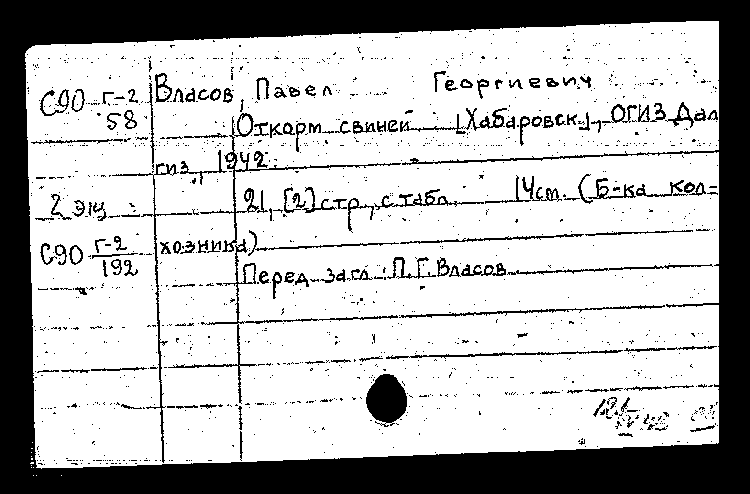 С90 Г-2/58 Власов, Павел Георгиевич
Откорм свиней [Хабаровск], ОГИЗ Дал
гиз, 1942.
2 экз 21, [2] стр., с табл. 14 см. (Б-ка кол-
С90 Г-2/192 хозника)
Перед загл.: П.Г. Власов